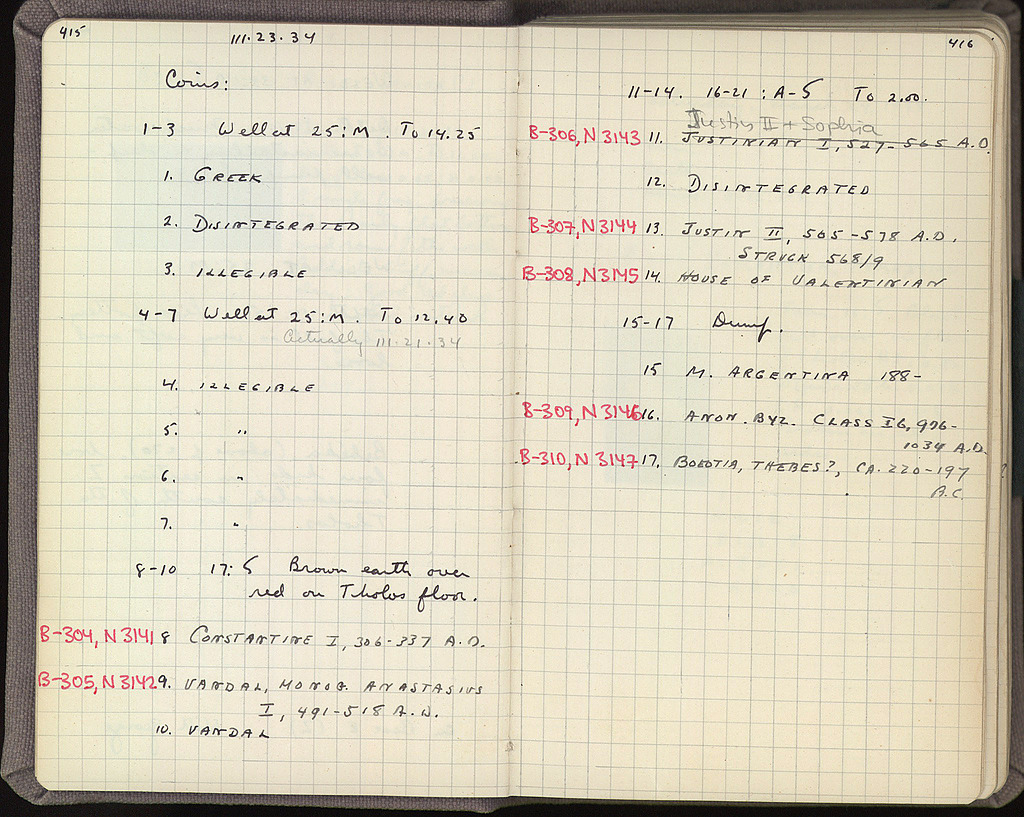 415
111.23.34
Coins:
1-3 Well at 25:M. To 14.25
1. GREEK
2. DISINTEGRATED
3. ILLEGIBLE
4-7 Well at 25:M. To 12.40
Actually 111.21.34
4. ILLEGIBLE
5. "
6. "
7. "
8-10 17:5 Brown earth over
red on Tholos floor.
B-304, N 3141 8 CONSTANTINE I, 306-337 A.D.
B-305, N 3142 9. VANDAL, MONOG. ANASTASIUS
I, 491-518 A.D.
10. VANDAL
416
11-14. 16-21: A-5 To 2.00.
Justin II + Sophia
B-306, N 3143 11. JUSTINIAN I, 527-565 A.D.
12. DISINTEGRATED
B-307, N 3144 13. JUSTIN II, 565-578 A.D.
STRUCK 568/9
B-308, N 3145 14. HOUSE OF VALENTINIAN
15-17 Dump.
15 M. ARGENTINA 188-
B-309, N 3146 16. ANON. BYZ. CLASS I6, 976-
1034 A.D.
B-310, N 3147 17. BOEOTIA, THEBES?, CA. 220-197 ?
A.C.